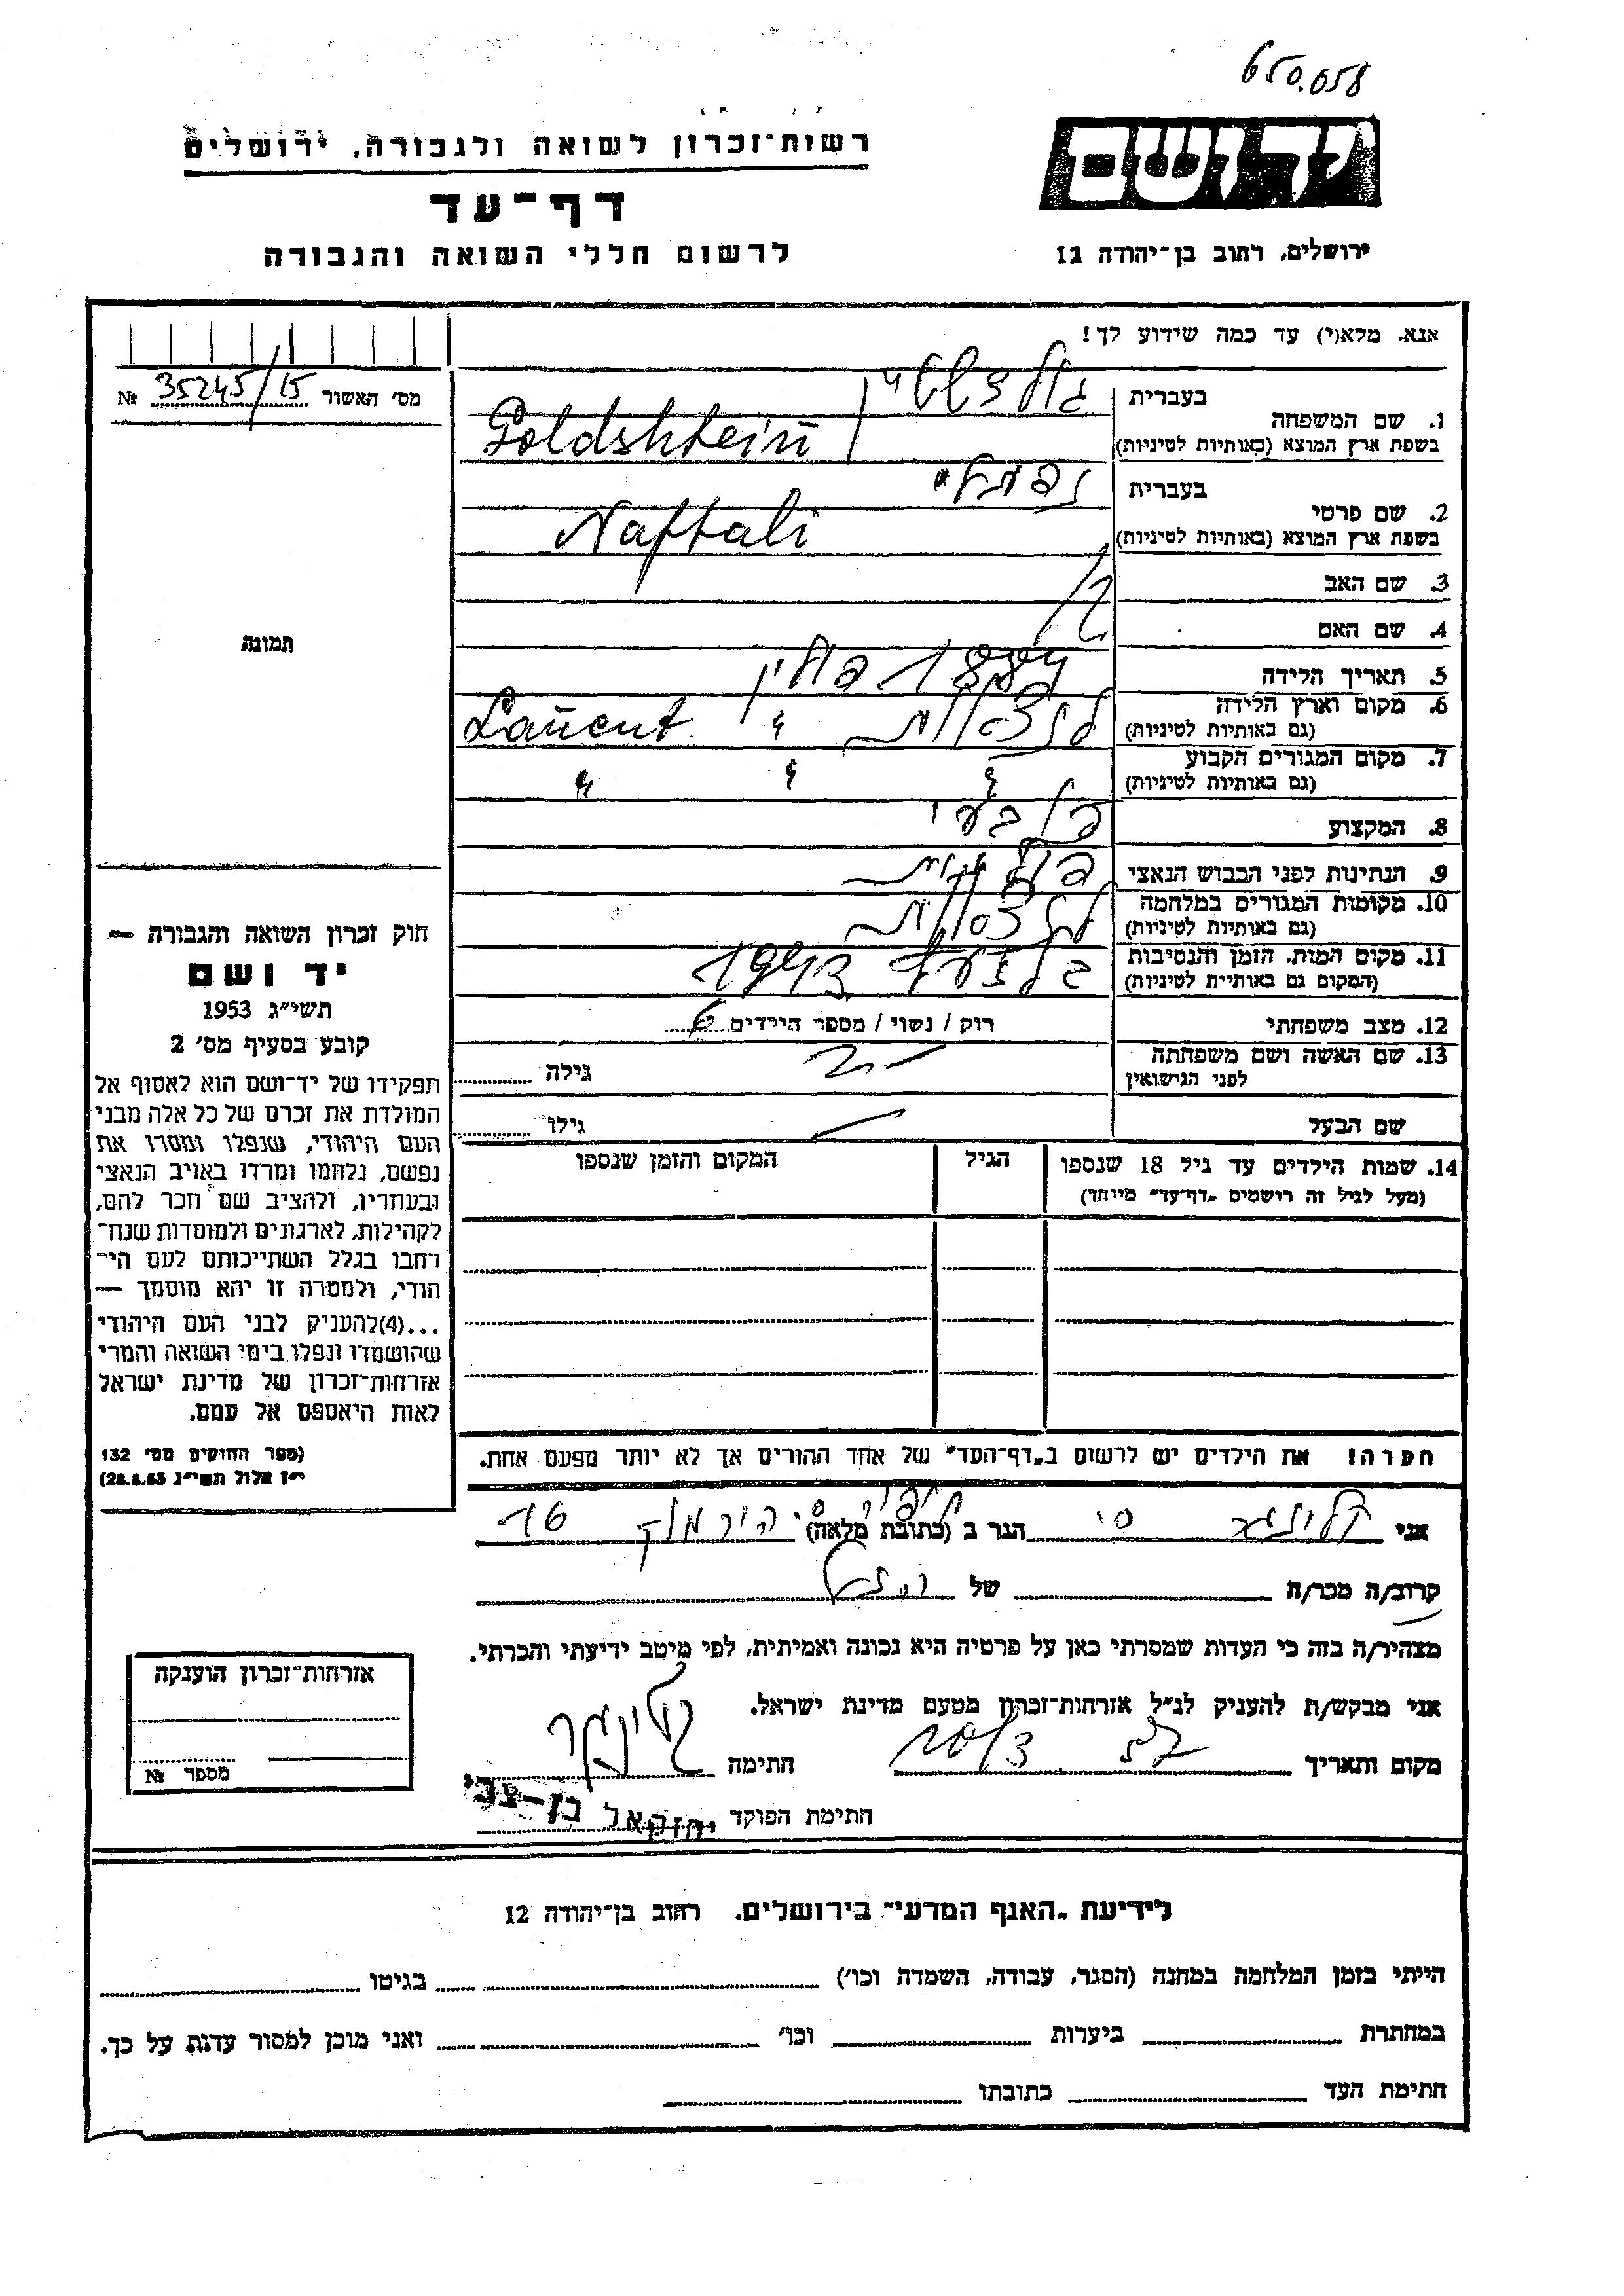 650.058
רשות־זכרון לשואה ולגבורה, ירושלים
יד ושם
דף־עד
לרשום חללי השואה והגבורה
ירושלים, רחוב בן־יהודה 12
אנא, מלא(י) עד כמה שידוע לך!
מס׳ האשור 35245/15 №
1. שם המשפחה
בעברית גולדשטיין
בשפת ארץ המוצא (באותיות לטיניות) Goldshtein
2. שם פרטי
בעברית נפתלי
בשפת ארץ המוצא (באותיות לטיניות) Naftali
3. שם האב
4. שם האם
5. תאריך הלידה 1884 פולין
6. מקום וארץ הלידה
(גם באותיות לטיניות) לנצהוט " Lancut
7. מקום המגורים הקבוע
(גם באותיות לטיניות) " " "
8. המקצוע
9. הנתינות לפני הכבוש הנאצי פולנית
10. מקומות המגורים במלחמה
(גם באותיות לטיניות) לנצהוט
11. מקום המות, הזמן והנסיבות
(המקום גם באותיית לטיניות) בלזעץ 1943
12. מצב משפחתי רוק / נשוי / מספר הילדים 6
13. שם האשה ושם משפחתה
לפני הנישואין
גילה
שם הבעל
גילו
14. שמות הילדים עד גיל 18 שנספו
(מעל לגיל זה רושמים „דף־עד" מיוחד)
הגיל
המקום והזמן שנספו
הערה! את הילדים יש לרשום ב„דף־העד" של אחד ההורים אך לא יותר מפעם אחת.
תמונה
חוק זכרון השואה והגבורה —
יד ושם
תשי״ג 1953
קובע בסעיף מס׳ 2
תפקידו של יד־ושם הוא לאסוף אל
המולדת את זכרם של כל אלה מבני
העם היהודי, שנפלו ומסרו את
נפשם, נלחמו ומרדו באויב הנאצי
ובעוזריו, ולהציב שם וזכר להם,
לקהילות, לארגונים ולמוסדות שנח־
רחבו בגלל השתייכותם לעם הי־
הודי, ולמטרה זו יהא מוסמך —
...(4)להעניק לבני העם היהודי
שהושמדו ונפלו בימי השואה והמרי
אזרחות־זכרון של מדינת ישראל
לאות היאספם אל עמם.
(ספר החוקים מס׳ 132
י״ז אלול תשי״ג 28.8.53)
אני קלינגר הגר ב (כתובת מלאה) הירמוק 16
קרוב/ה מכר/ה של
מצהיר/ה בזה כי העדות שמסרתי כאן על פרטיה היא נכונה ואמיתית, לפי מיטב ידיעתי והכרתי.
אני מבקש/ת להעניק לנ״ל אזרחות־זכרון מטעם מדינת ישראל.
מקום ותאריך חתימה קלינגר
חתימת הפוקד יחזקאל בן-צבי
אזרחות־זכרון הוענקה
מספר №
לידיעת „האגף המדעי" בירושלים. רחוב בן־יהודה 12
הייתי בזמן המלחמה במחנה (הסגר, עבודה, השמדה וכו׳) בגיטו
במחתרת ביערות וכו׳ ואני מוכן למסור עדות על כך.
חתימת העד כתובתו